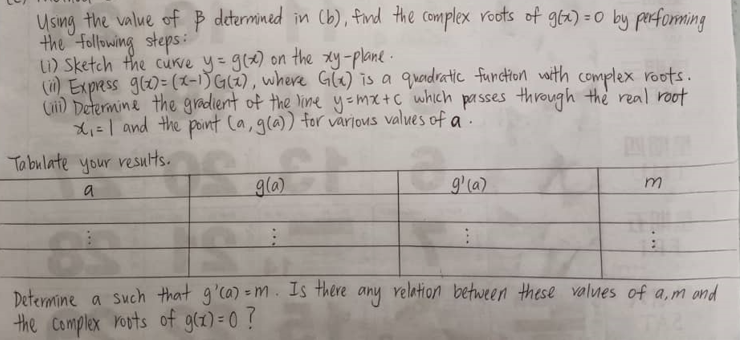 Using the value of β determined in (b), find the complex roots of g(x) = 0 by performing
the following steps:
(i) Sketch the curve y = g(x) on the xy-plane.
(ii) Express g(x) = (x-1)G(x), where G(x) is a quadratic function with complex roots.
(iii) Determine the gradient of the line y=mx+c which passes through the real root
x₁=1 and the point (a, g(a)) for various values of a.
Tabulate your results.
a g(a) g'(a) m
⋮ ⋮ ⋮ ⋮
Determine a such that g'(a) = m. Is there any relation between these values of a, m and
the complex roots of g(x) = 0 ?